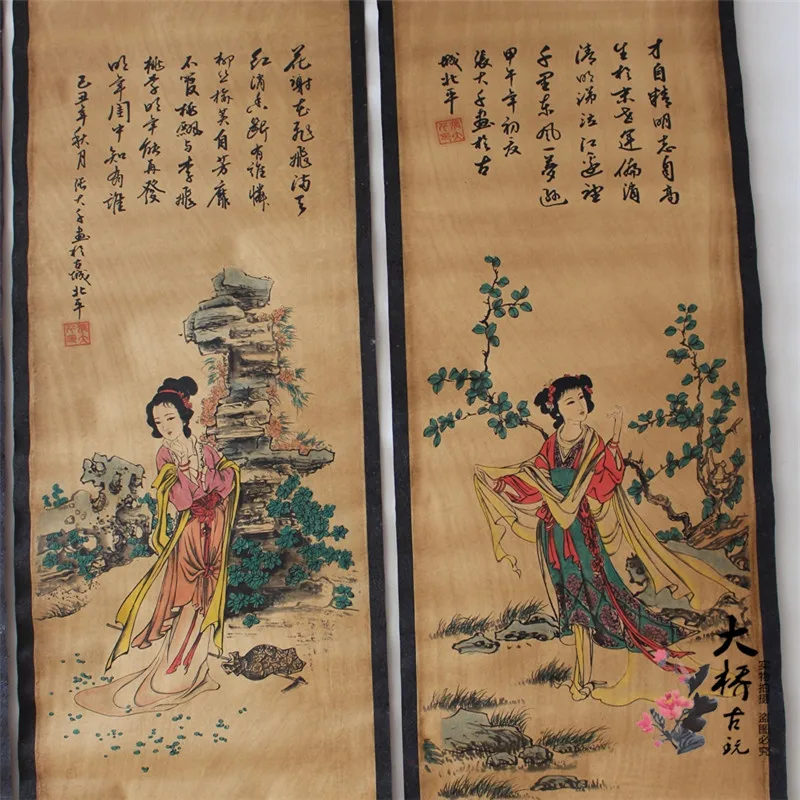 才自精明志自高
生於末世運偏消
清明涕泣江邊望
千里东風一夢遥
甲午年初夜
張大千画於古
城北平
花谢花飛飛满天
红消香断有谁憐
柳丝榆荚自芳菲
不管桃飄与李飛
桃李明年能再發
明年闺中知有谁
己丑年秋月张大千画於古城北平
大桥古玩
实物拍摄 盗图必究